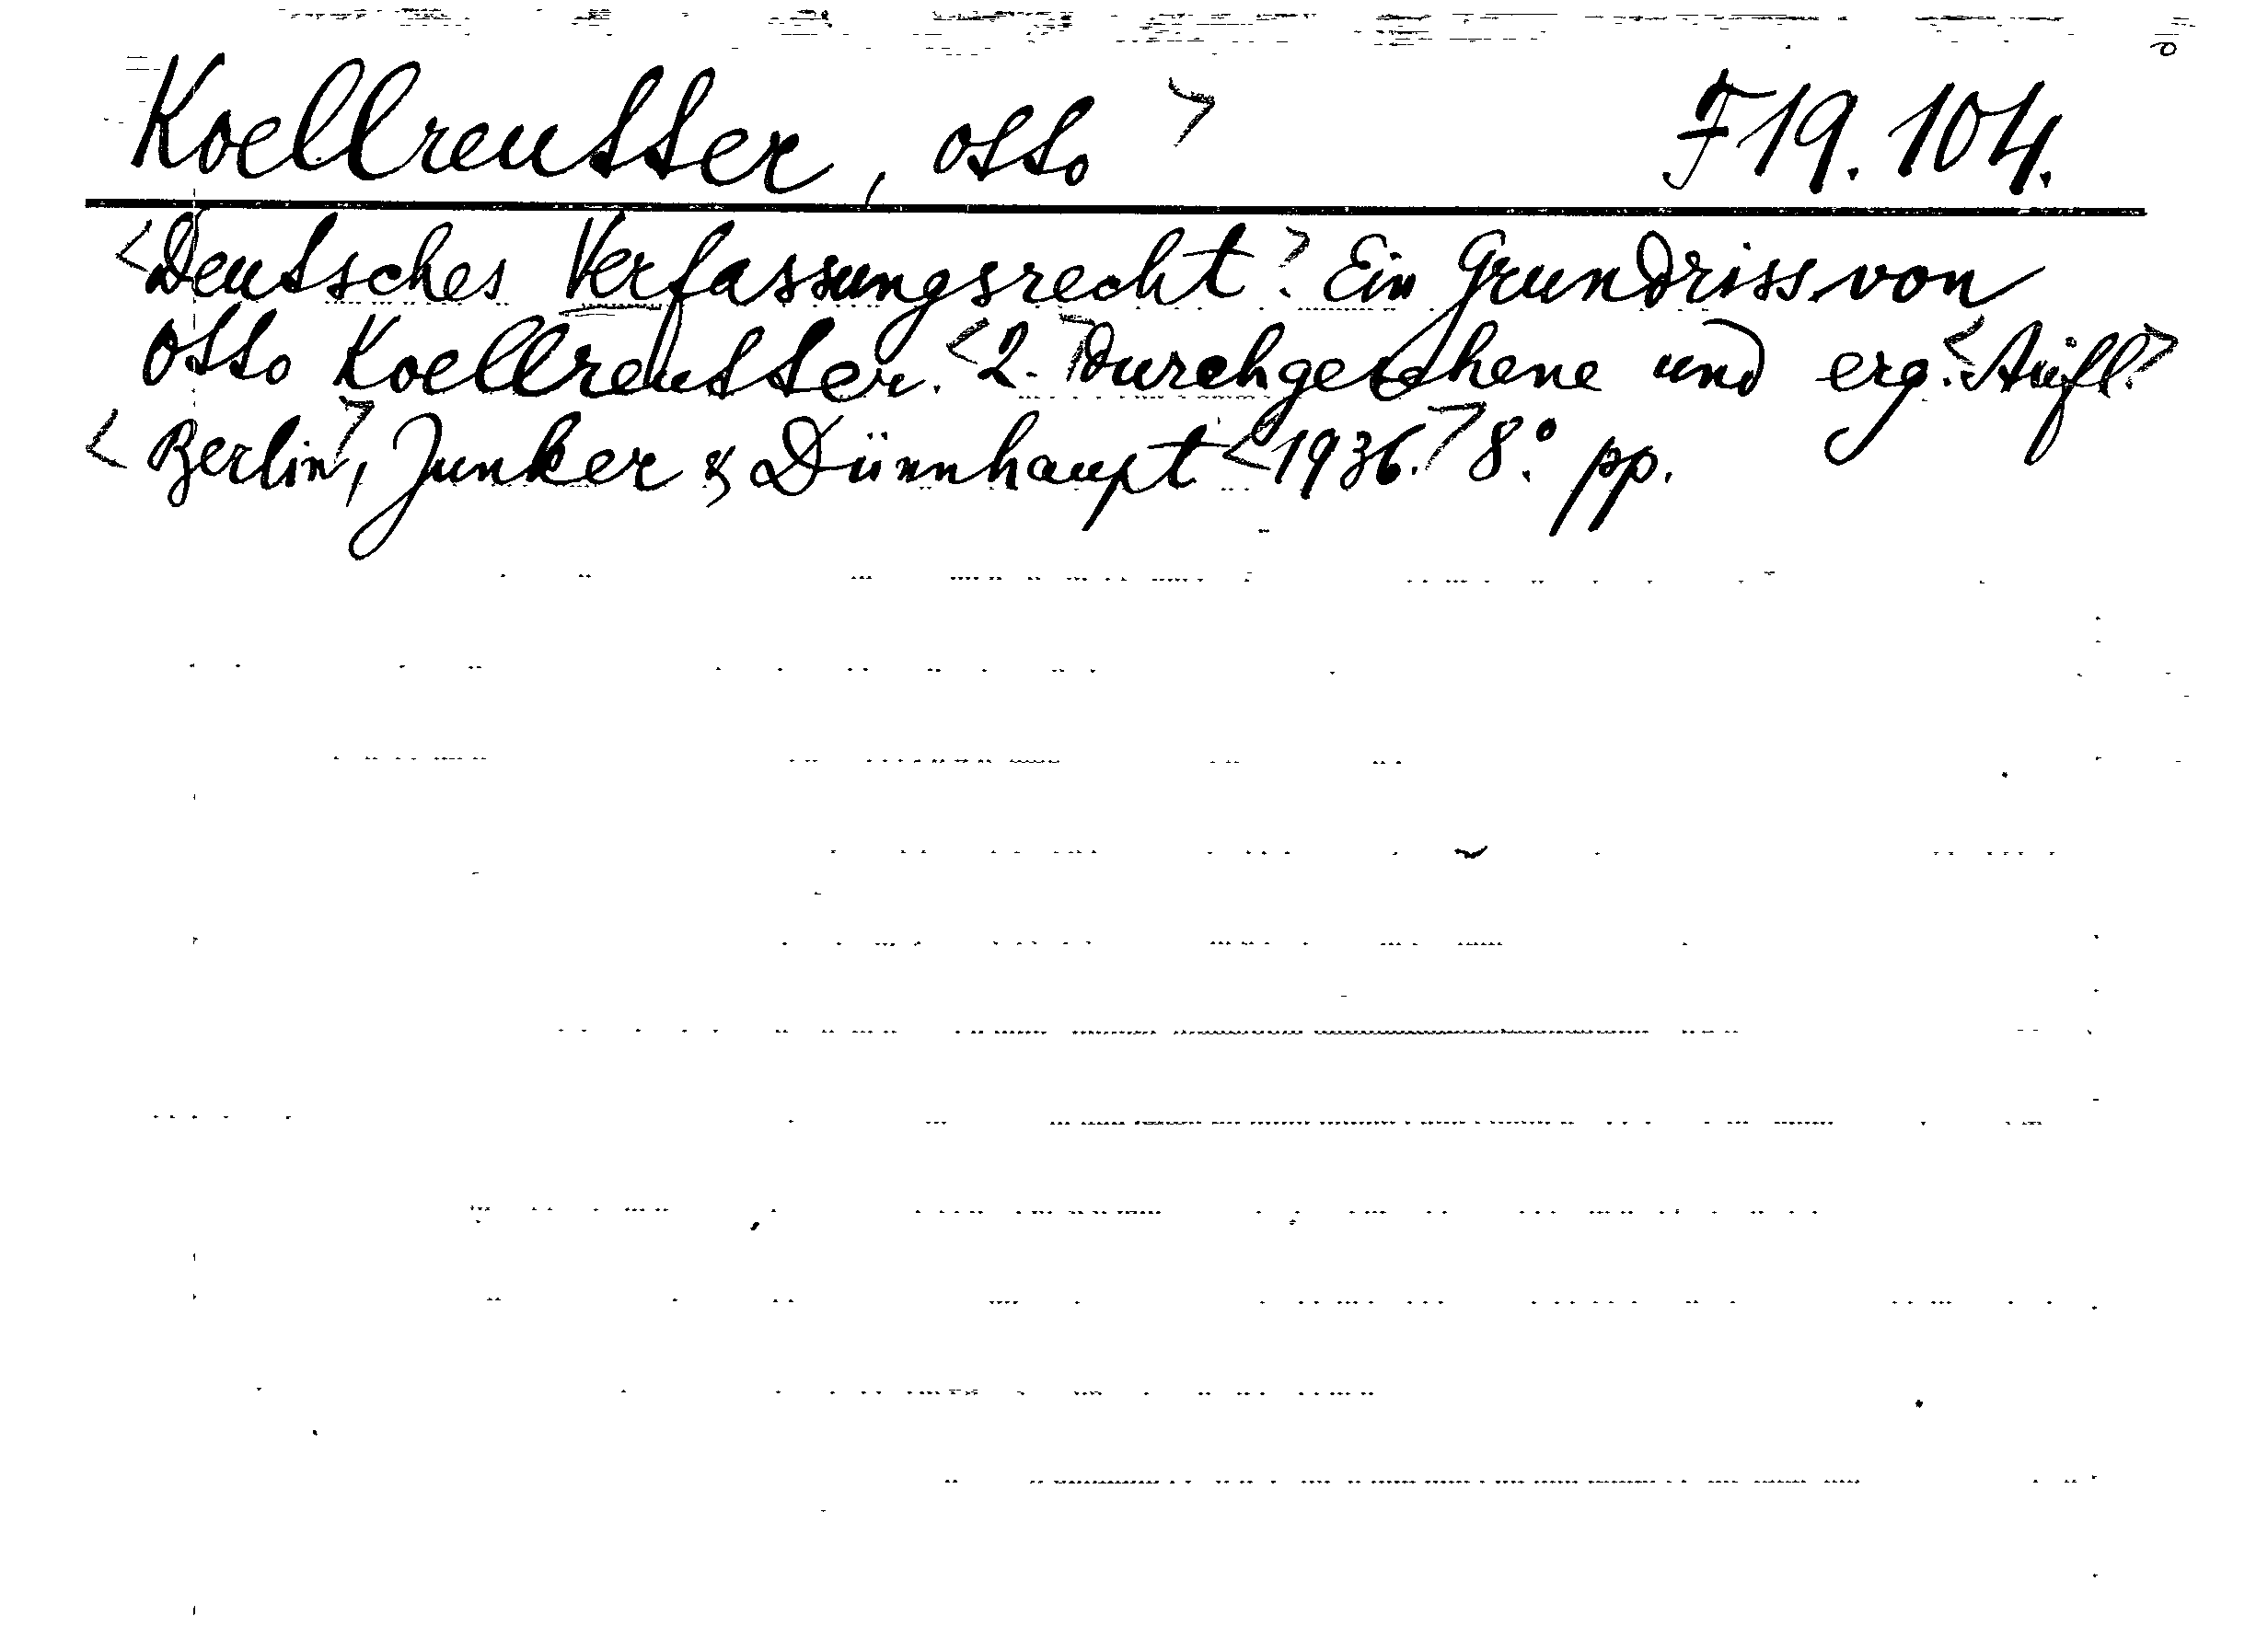 Koellreutter, Otto> F19.104.
<Deutsches Verfassungsrecht.> Ein Grundriss von
Otto Koellreutter. <2.> Durchgesehene und erg. <Aufl.>
<Berlin>, Junker & Dünnhaupt <1936.> 8°. pp.